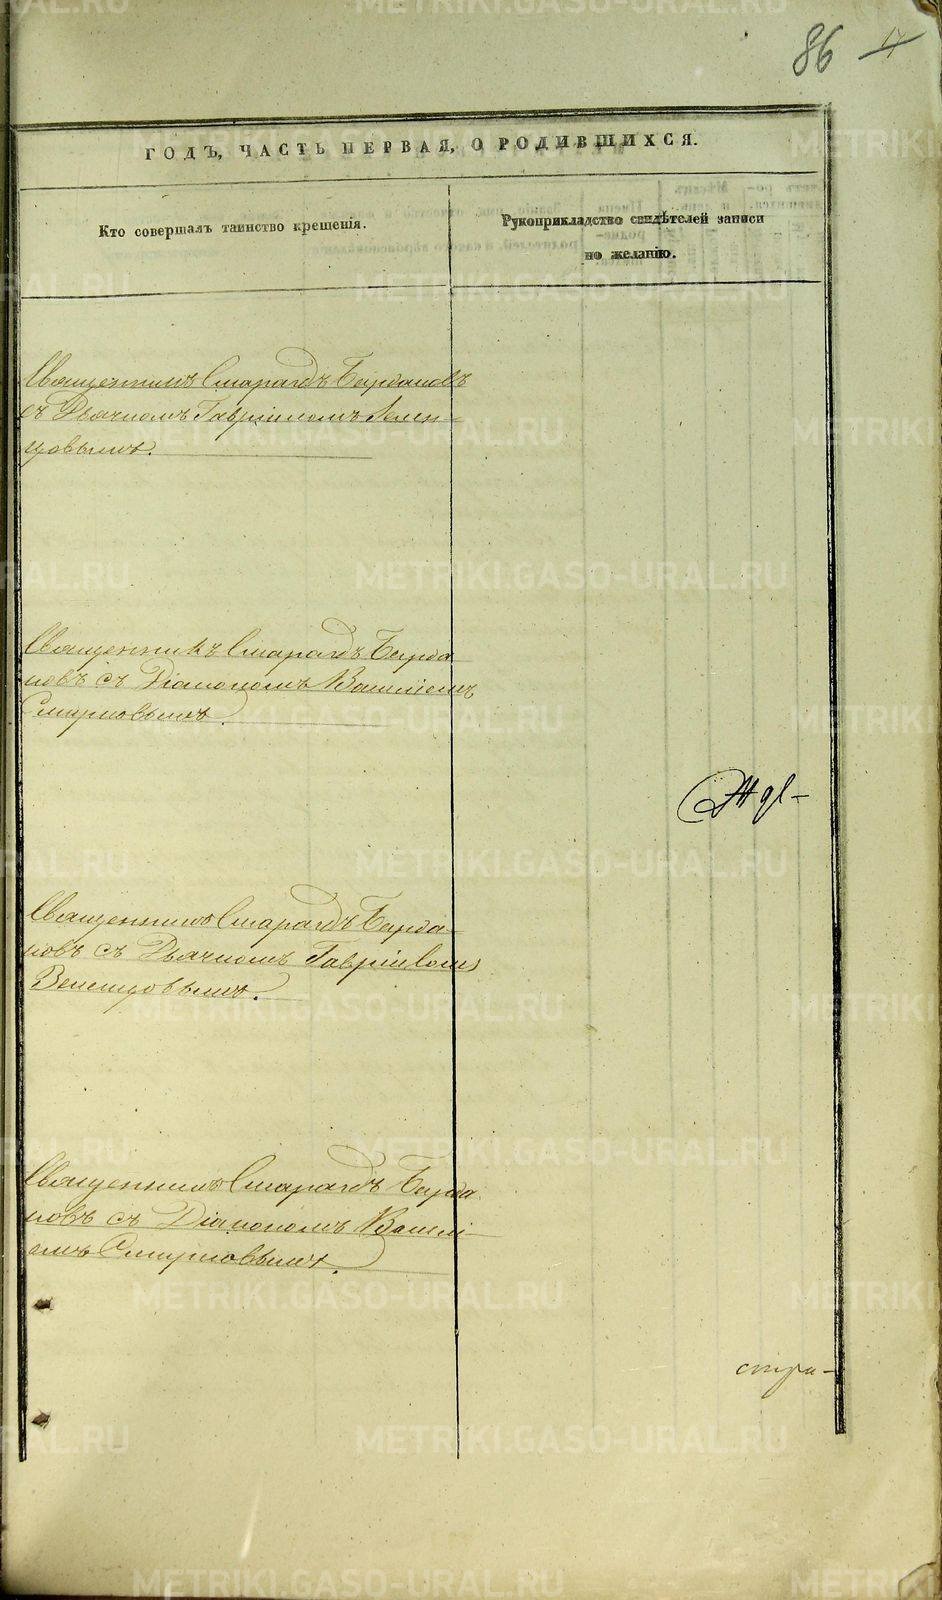 86 17
ГОДЪ, ЧАСТЬ ПЕРВАЯ, О РОДИВШИХСЯ.
Кто совершалъ таинство крещенія.
Рукоприкладство свидѣтелей записи
по желанію.
Священникъ Смарагдъ Бирдановъ
съ Дьячкомъ Гавріиломъ Зелен-
цовымъ.
Священникъ Смарагдъ Бирда
новъ съ Діакономъ Василіемъ
Смирновымъ.
Священникъ Смарагдъ Бирда-
новъ съ Дьячкомъ Гавріиломъ
Зеленцовымъ.
Священникъ Смарагдъ Бирда
новъ съ Діакономъ Васили-
емъ Смирновымъ.
стра-
METRIKI.GASO-URAL.RU